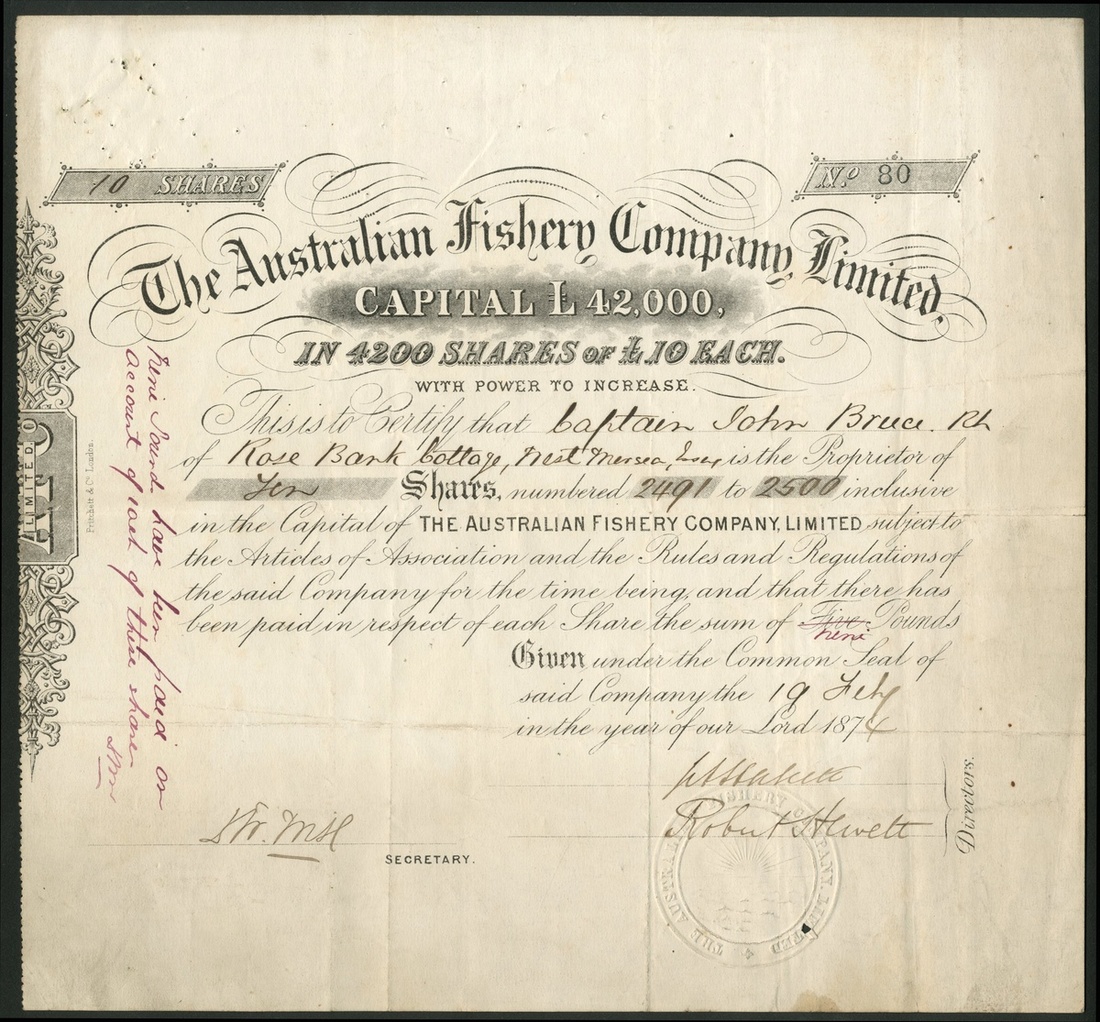 10 SHARES
No. 80
The Australian Fishery Company, Limited,
CAPITAL £ 42,000,
IN 4200 SHARES OF £10 EACH.
WITH POWER TO INCREASE.
This is to Certify that Captain John Bruce. RN
of Rose Bank Cottage, West Mersea, Essex is the Proprietor of
Ten Shares, numbered 2491 to 2500 inclusive
in the Capital of THE AUSTRALIAN FISHERY COMPANY, LIMITED subject to
the Articles of Association and the Rules and Regulations of
the said Company for the time being, and that there has
been paid in respect of each Share the sum of Five Pounds
nine
Given under the Common Seal of
said Company the 19 Feby
in the year of our Lord 187
Robert Hewett
Directors.
SECRETARY.
THE AUSTRALIAN FISHERY COMPANY, LIMITED
nine Pounds have been paid on
account of each of these shares
Pritchett & Co. London.
LIMITED.